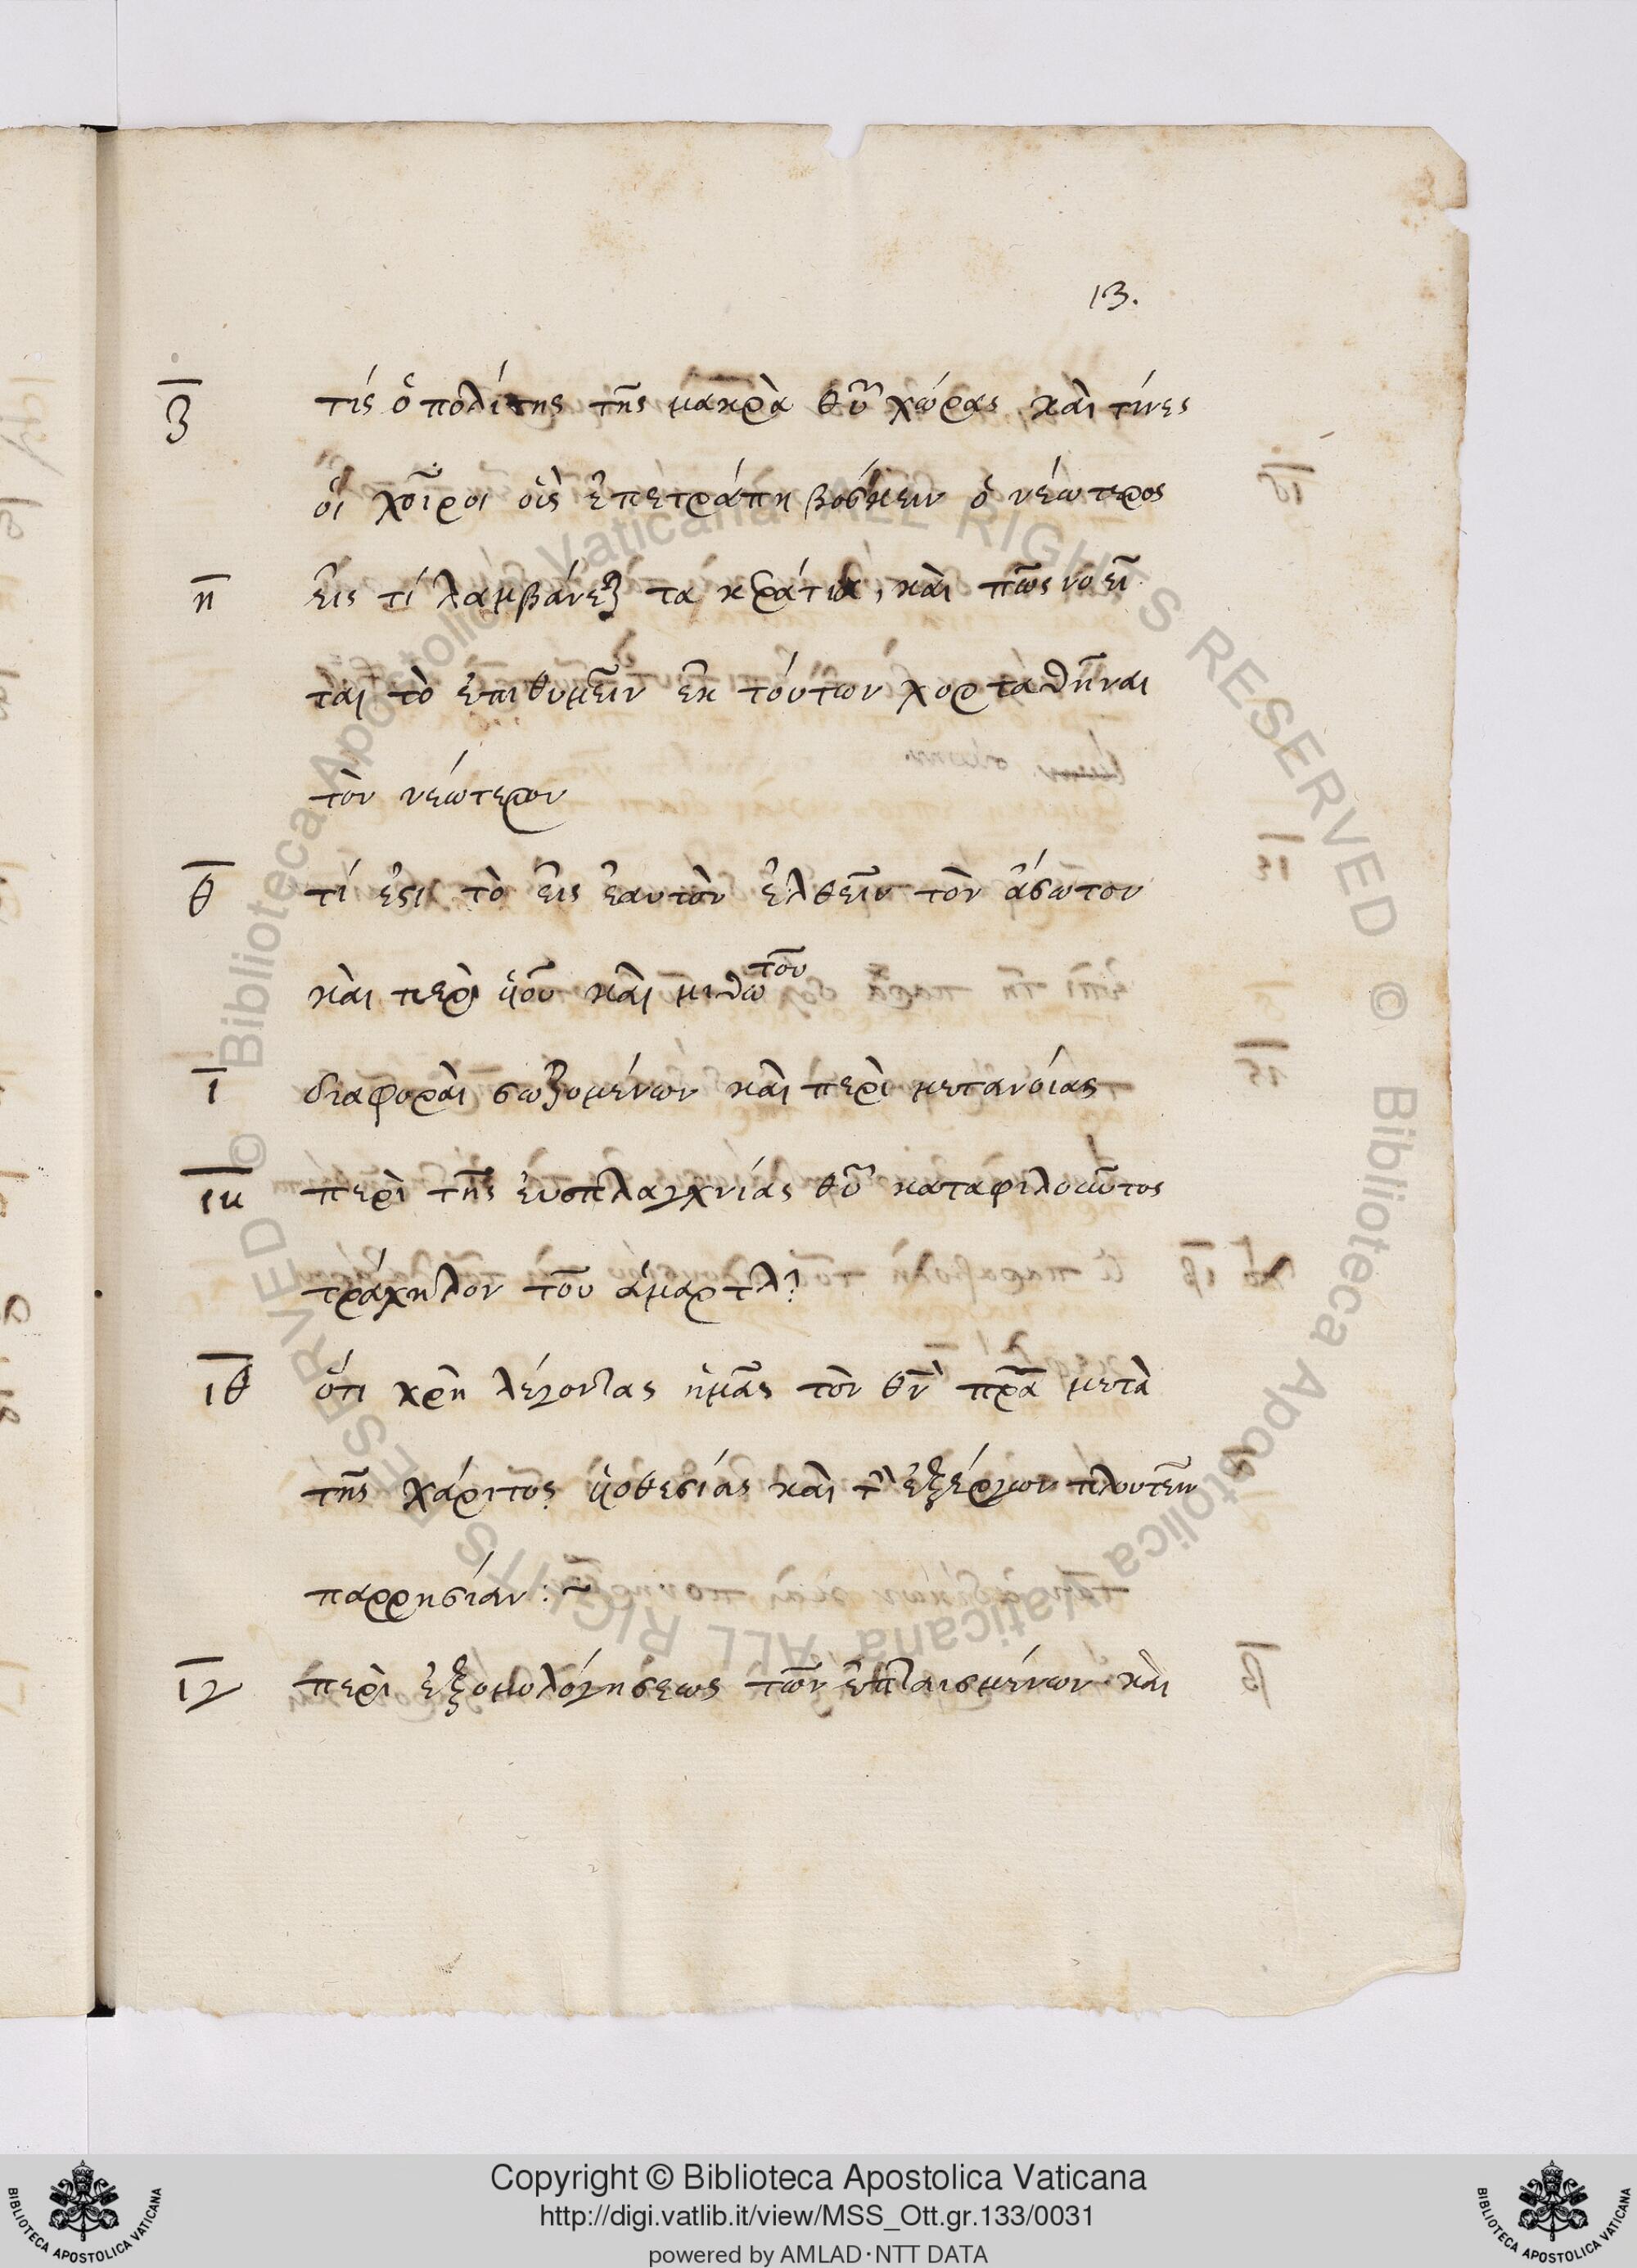 13.
ζ τίς ὁ πολίτης τῆς μακρὰ θῦ χώρας, καὶ τίνες
οἱ χοῖροι οἷς ἐπετράπη βόσκειν ὁ νεώτερος
η εἰς τί λαμβάνεται τα κεράτια, καὶ πῶς νοεῖ
ται τὸ ἐπιθυμεῖν ἐκ τούτων χορταθῆναι
τὸν νεώτερον
θ τί ἐστι τὸ εἰς ἑαυτὸν ἐλθεῖν τὸν ἄσωτον
καὶ περὶ ὑιοῦ καὶ μισθωτοῦ
ι διαφοραὶ σωζομένων καὶ περὶ μετανοίας
ια περὶ τῆς ἐυσπλαγχνίας θῦ καταφιλοῦντος
τράχηλον τοῦ ἁμαρτλ
ιθ ὅτι χρὴ λέγοντας ἡμᾶς τὸν θν̄ πρ̄α μετὰ
τῆς χάριτος ὑιοθεσίας καὶ τὴν ἐξ ἔργων πλουτεῖν
παρρησίαν :~
ιγ περὶ ἐξομολόγησεως τῶν ἐπταισμένων καὶ
Copyright © Biblioteca Apostolica Vaticana
http://digi.vatlib.it/view/MSS_Ott.gr.133/0031
powered by AMLAD·NTT DATA
BIBLIOTECA APOSTOLICA VATICANA
BIBLIOTECA APOSTOLICA VATICANA